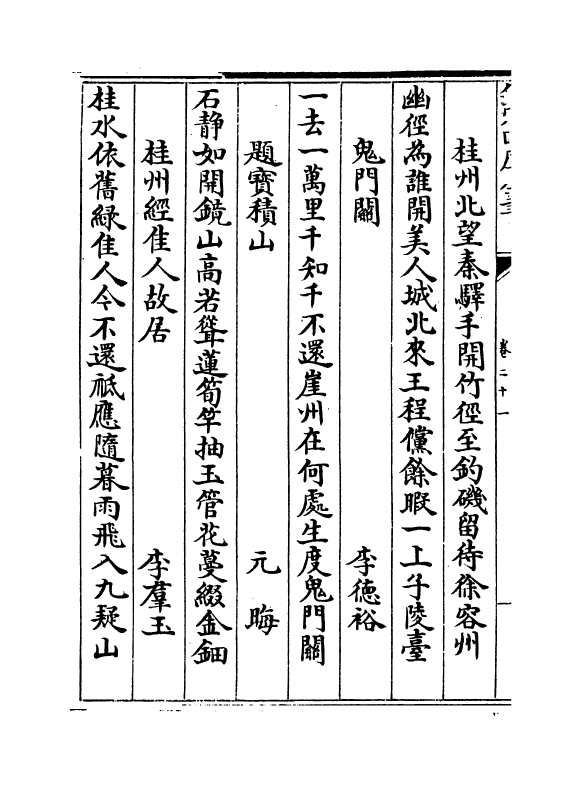 卷二十一
桂州北望秦驛手開竹徑至釣磯留待徐容州
幽徑為誰開美人城北來王程儻餘暇一上子陵臺
鬼門關　李德裕
一去一萬里千知千不還崖州在何處生度鬼門關
題寶積山　元晦
石静如開鏡山高若聳蓮筍竿抽玉管花蔓綴金鈿
桂州經佳人故居　李羣玉
桂水依舊緑佳人今不還祗應隨暮雨飛入九疑山